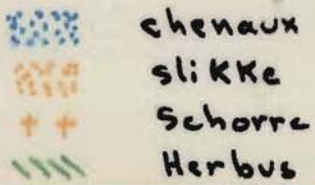 chenaux
slikke
Schorre
Herbus